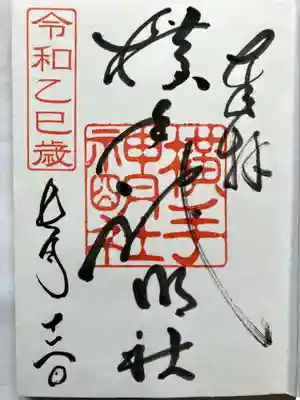 奉拝
横手神明社
横手
神明社
令和乙巳歳